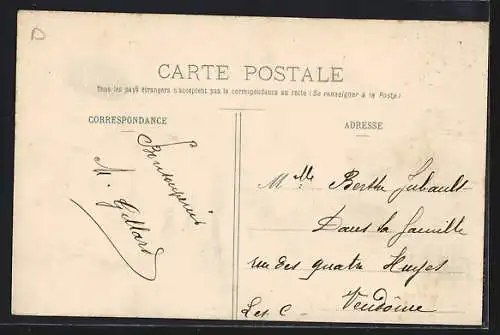 D
CARTE POSTALE
Tous les pays étrangers n'acceptent pas la correspondance au recto (Se renseigner à la Poste)
CORRESPONDANCE
M. Gillard
ADRESSE
Mlle Berthe Jubault
Dans la famille
rue des quatre Huyes
Vendôme